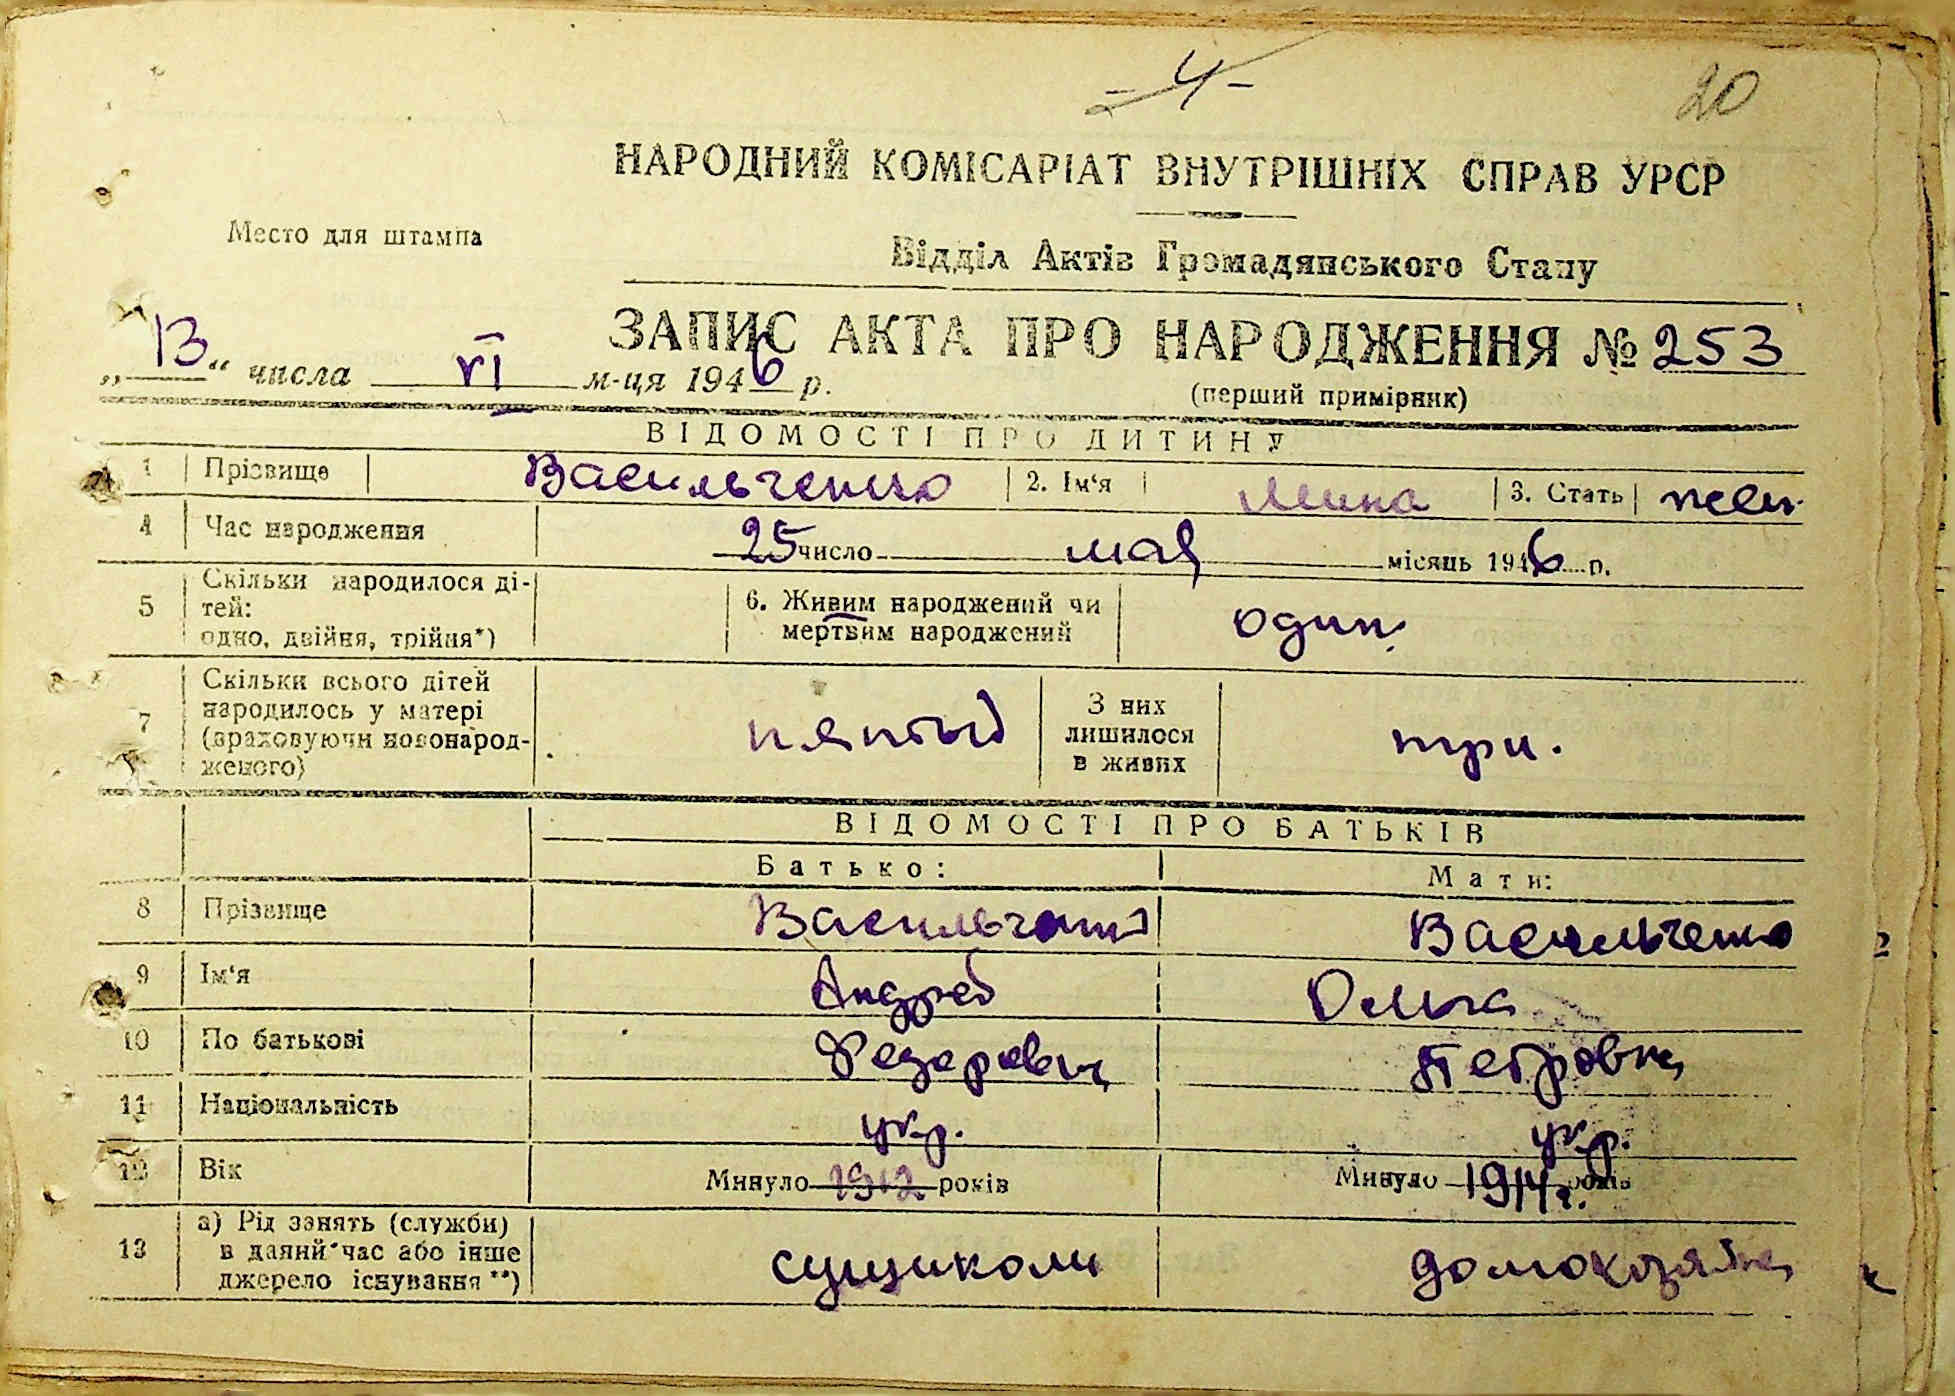 - 4 -
20
НАРОДНИЙ КОМІСАРІАТ ВНУТРІШНІХ СПРАВ УРСР
Место для штампа
Відділ Актів Громадянського Стану
ЗАПИС АКТА ПРО НАРОДЖЕННЯ № 253
„13“ числа VI м-ця 1946 р.
(перший примірник)
ВІДОМОСТІ ПРО ДИТИНУ
1 Прізвище Васильченко 2. Ім‘я 3. Стать жен.
4 Час народження 25 число мая місяць 1946 р.
5 Скільки народилося ді-
тей:
одно, двійня, трійня*)
6. Живим народжений чи
мертвим народжений
один.
7 Скільки всього дітей
народилось у матері
(враховуючи новонарод-
женого)
пятый
З них
лишилося
в живих
три.
ВІДОМОСТІ ПРО БАТЬКІВ
Батько: Мати:
8 Прізвище Васильченко Васильченко
9 Ім‘я Андрей Ольга
10 По батькові Петровна
11 Національність укр. укр.
12 Вік Минуло 1912 років Минуло 1914 г. років
13 а) Рід занять (служби)
в даний час або інше
джерело існування **)
домохозяйка